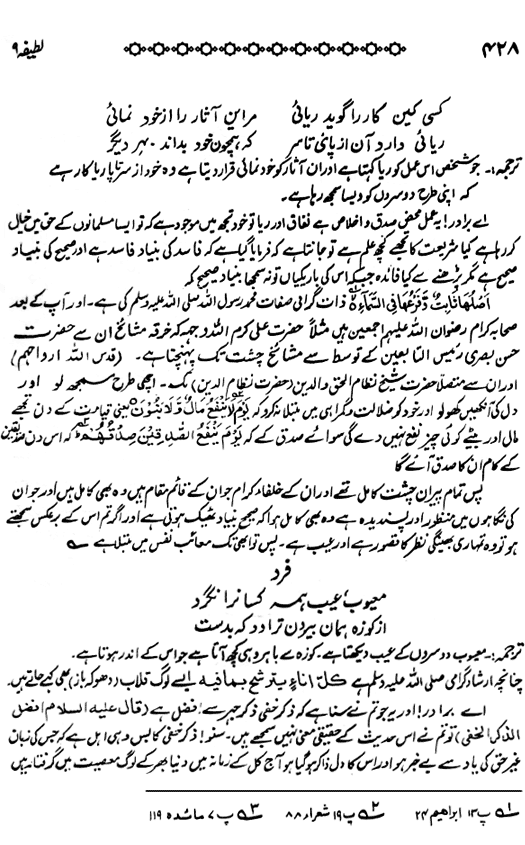 ۴۲۸ لطیفہ ۹
کسی کین کار را گوید ریائی مر این آثار را از خود نمائی
ریائی دارد آن از پائی تا سر کہ ہمچون خود بداند بہر دیگر
ترجمہ:۔ جو شخص اس عمل کو ریا کہتا ہے اور ان آثار کو خود نمائی قرار دیتا ہے وہ خود از سر تا پا ریا کار ہے
کہ اپنی طرح دوسروں کو ویسا سمجھ رہا ہے۔
اے برادر! یہ عمل محض صدق و اخلاص ہے نفاق اور ریا تو خود تجھ میں موجود ہے کہ تو ایسا مسلمانوں کے حق میں خیال
کر رہا ہے کیا شریعت کا تجھے کچھ علم ہے تو جانتا ہے کہ فرمایا گیا ہے کہ فاسد کی بنیاد فاسد ہے اور صحیح کی بنیاد
صحیح ہے تجھ پر پڑھنے سے کیا فائدہ جبکہ اس کی باریکیاں تو نہ سمجھا بنیاد صحیح کہ
اَصْلُهَا ثَابِتٌ وَّفَرْعُهَا فِی السَّمَآءِ ۱ ذات گرامی صفات محمد رسول اللہ صلی اللہ علیہ وسلم کی ہے۔ اور آپ کے بعد
صحابہ کرام رضوان اللہ علیہم اجمعین ہیں مثلاً حضرت علی کرم اللہ وجہہ کہ خرقہ مشائخ ان سے حضرت
حسن بصری رئیس التابعین کے توسط سے مشائخ چشت تک پہنچتا ہے۔ (قدس اللہ ارواحہم)
اور ان سے متصلاً حضرت شیخ نظام الحق والدین (حضرت نظام الدین) تک۔ اچھی طرح سمجھ لو اور
دل کی آنکھیں کھولو اور خود کو ضلالت و گمراہی میں مبتلا نہ کرو کہ یَوْمَ لَا یَنْفَعُ مَالٌ وَّلَا بَنُوْنَ ۲ یعنی قیامت کے دن تجھے
مال اور بیٹے کوئی چیز نفع نہیں دے گی سوائے صدق کے کہ یَوْمُ یَنْفَعُ الصّٰدِقِیْنَ صِدْقُهُمْ ۳ کہ اس دن صادقین
کے کام ان کا صدق آئے گا
پس تمام پیران چشت کامل تھے اور ان کے خلفاء کرام جو ان کے قائم مقام ہیں وہ بھی کامل ہیں اور جو ان
کی نگاہوں میں منظور اور پسندیدہ ہے وہ بھی کامل ہوا کہ صحیح بنیاد ٹھیک ہوتی ہے اور اگر تم اس کے برعکس سمجھتے
ہو تو وہ تمہاری بھینگی نظر کا قصور ہے اور عیب ہے۔ پس تو ابھی تک معائب نفس میں مبتلا ہے
فرد
معیوب عیب ہمہ کسانرا نگرد
از کوزہ ہمان بیرون تراود کہ بدست
ترجمہ:۔ معیوب دوسروں کے عیب دیکھتا ہے۔ کوزہ سے باہر وہی کچھ آتا ہے جو اس کے اندر ہوتا ہے۔
چنانچہ ارشاد گرامی صلی اللہ علیہ وسلم ہے کل اناءٍ یترشح بما فیہ ایسے لوگ قلاب (دھوکہ باز) بھی کہے جاتے ہیں۔
اے برادر! اور یہ جو تم نے سنا ہے کہ ذکر خفی ذکر جہر سے افضل ہے (قال علیہ السلام افضل
الذکر الخفی) تو تم نے اس حدیث کے حقیقی معنی نہیں سمجھے ہیں۔ سنو! ذکر خفی کا بس وہی اہل ہے کہ جس کی زبان
غیر حق کی یاد سے بے خبر ہو اور اس کا دل ذاکر ہو گیا ہو آج کل کے زمانہ میں دنیا بھر کے لوگ معصیت میں گرفتار ہیں
۱ پ ۱۳ ابراھیم ۲۴ ۲ پ ۱۹ شعراء ۸۸ ۳ پ ۷ مائدہ ۱۱۹